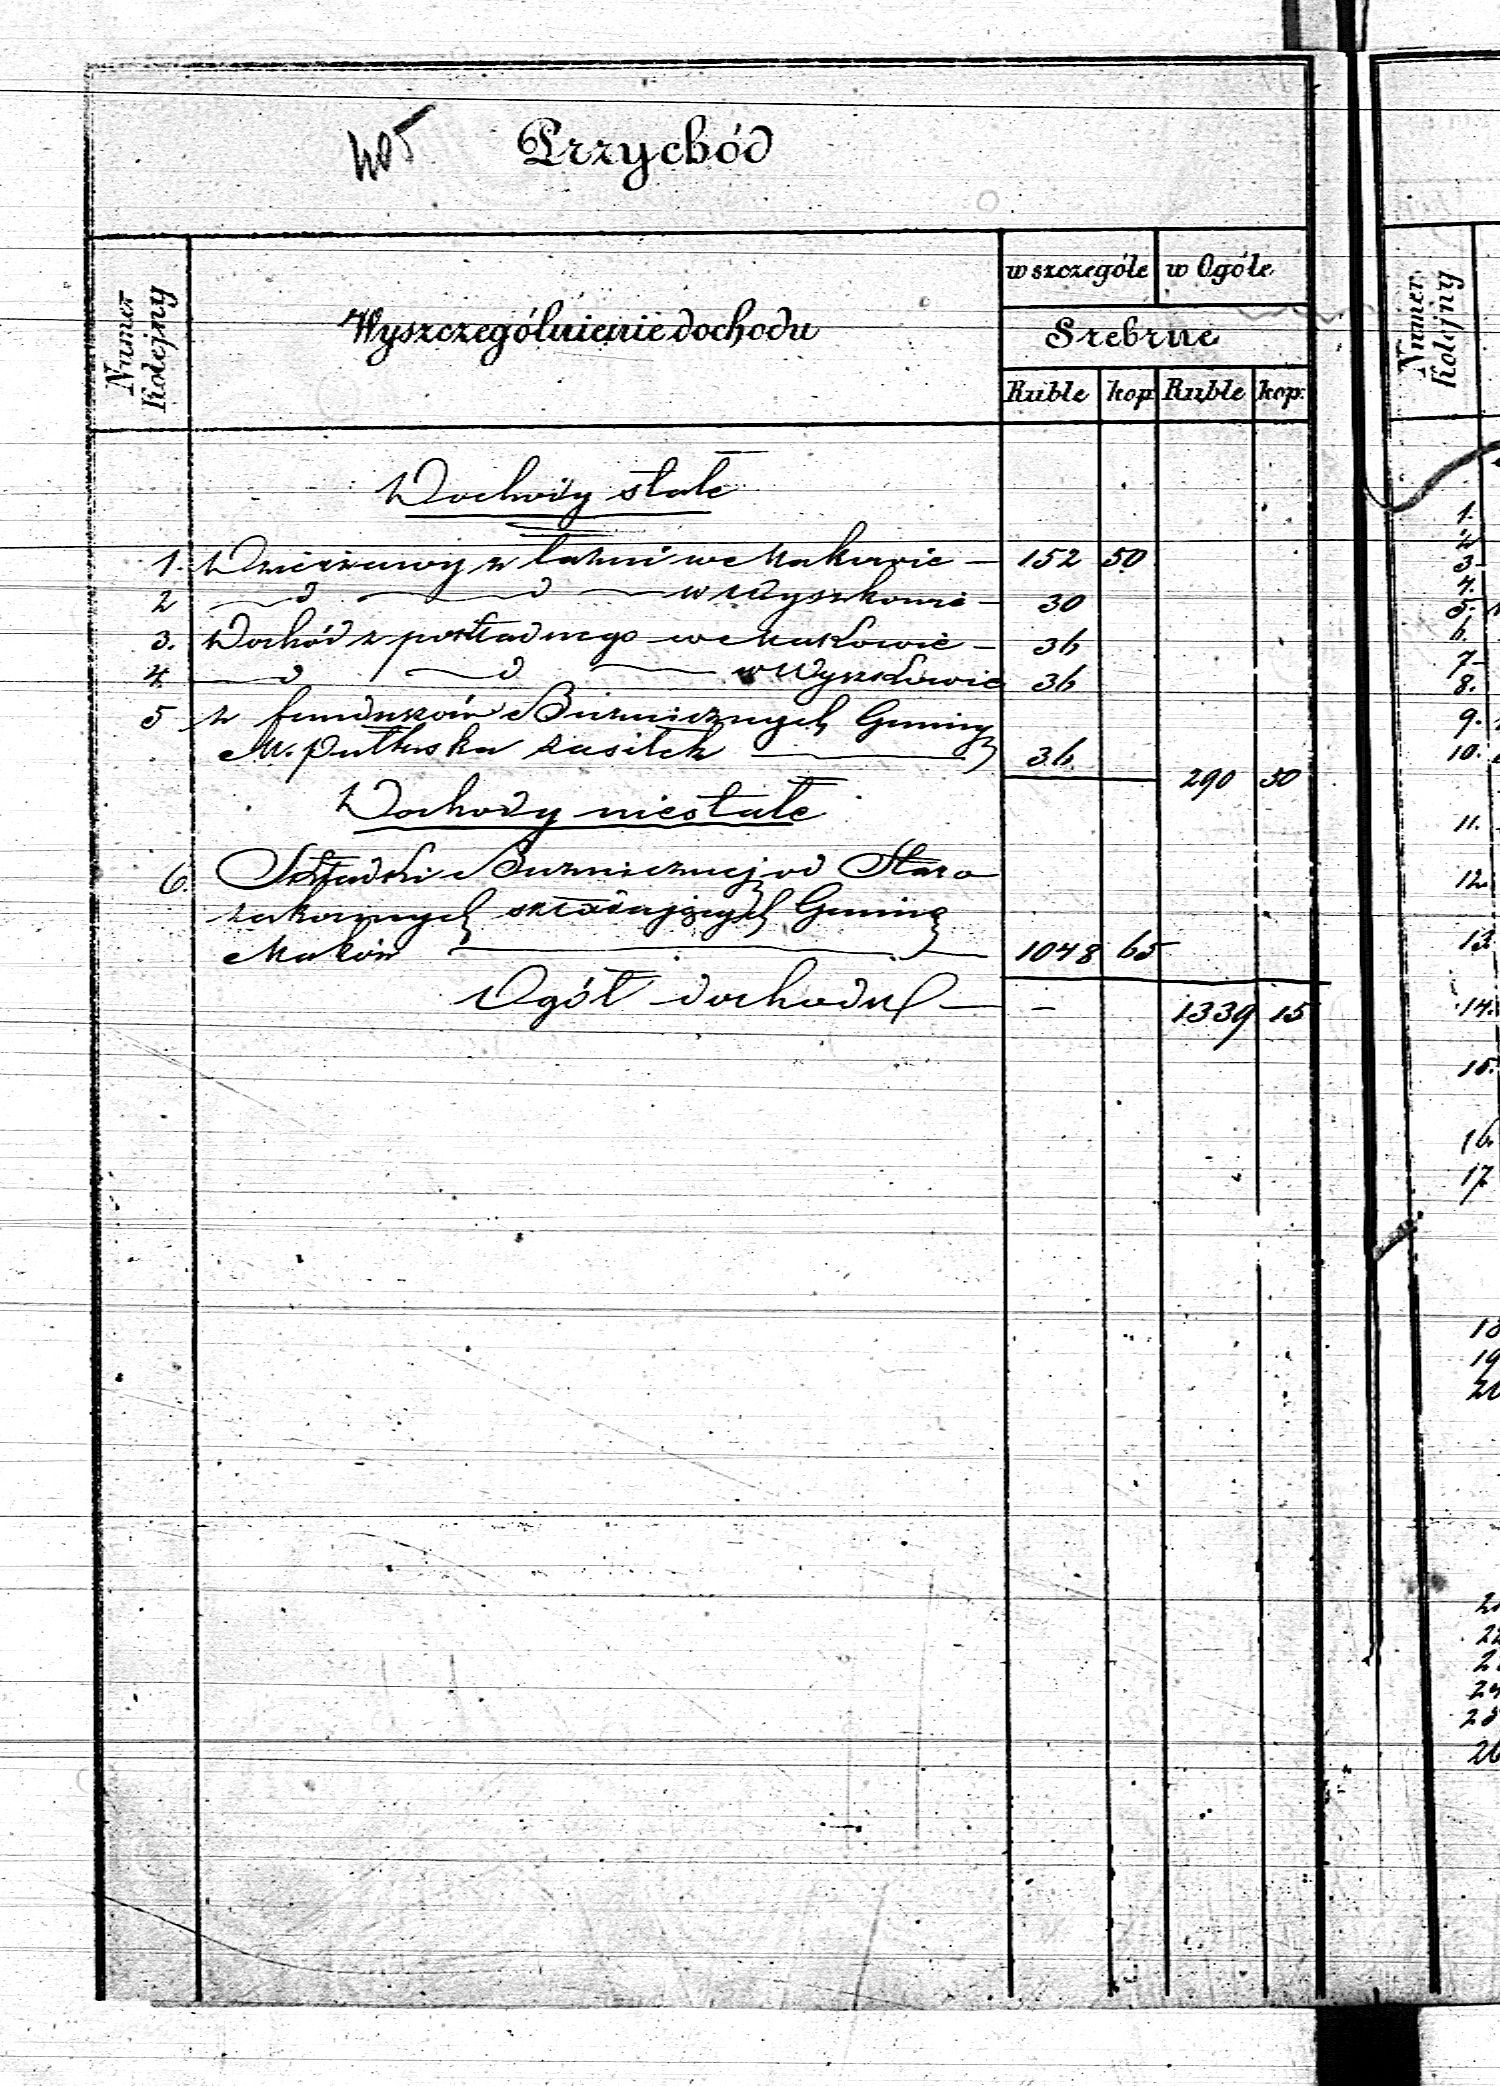 405 Przychód
Numer Kolejny
Wyszczególnienie dochodu
w szczególe w Ogóle
Srebrne
Ruble kop Ruble kop:
Dochody stałe
1. Dzierżawy z łaźni w Makowie — 152 50
2 — d — d — w Wyszkowie — 30
3. Dochód z pokładnego w Makowie — 36
4. — d — d — w Wyszkowie 36
5 z funduszów Bużnicznych Gminy
M. Pułtuska zasiłek — 36
290 50
Dochody niestałe
6. Składki Bużnicznej od Staro
zakonnych składających Gminę
Maków — 1048 65
Ogół dochodu — - 1339 15
Numer Kolejny
1.
2
3
4.
5.
6.
7
8.
9.
10.
11.
12
13
14.
15.
16.
17
18
19